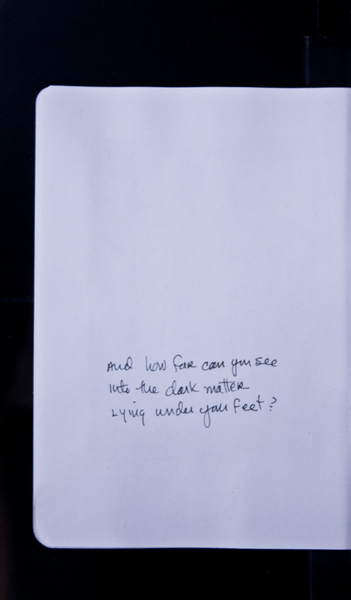 And how far can you see
into the dark matter
Lying under your feet?